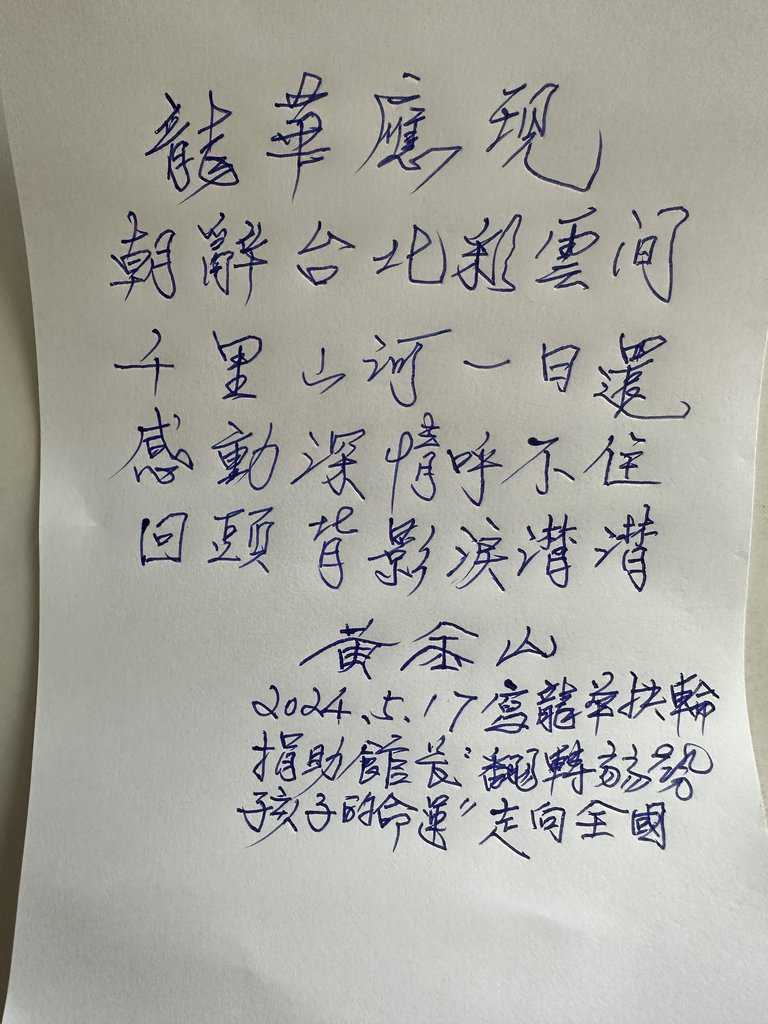 龍華應現
朝辭台北彩雲间
千里山河一日還
感動深情呼不住
回頭背影淚潸潸
黃金山
2024.5.17 寫龍華扶輪
捐助館長"翻轉弱勢
孩子的命運"走向全國